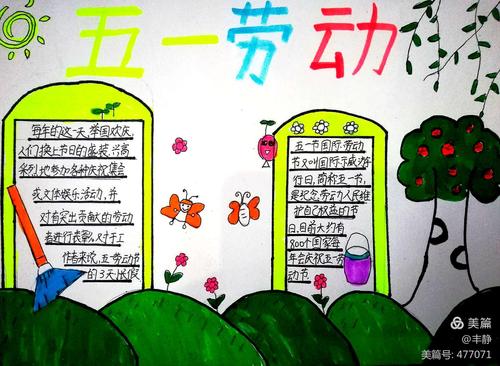 五一劳动
每年的这一天,举国欢庆,
人们换上节日的盛装,兴高
采烈地参加各种庆祝集会
或文体娱乐活动,并
对有突出贡献的劳动
者进行表彰,对于工
作者来说,五一劳动节
的3天假
五一节国际劳动
节又叫国际示威游
行日,简称五一节,
是纪念劳动人民维
护自己权益的节
日,目前大约有
800个国家每
年会庆祝五一劳
动节
美篇
@丰静
美篇号: 477071